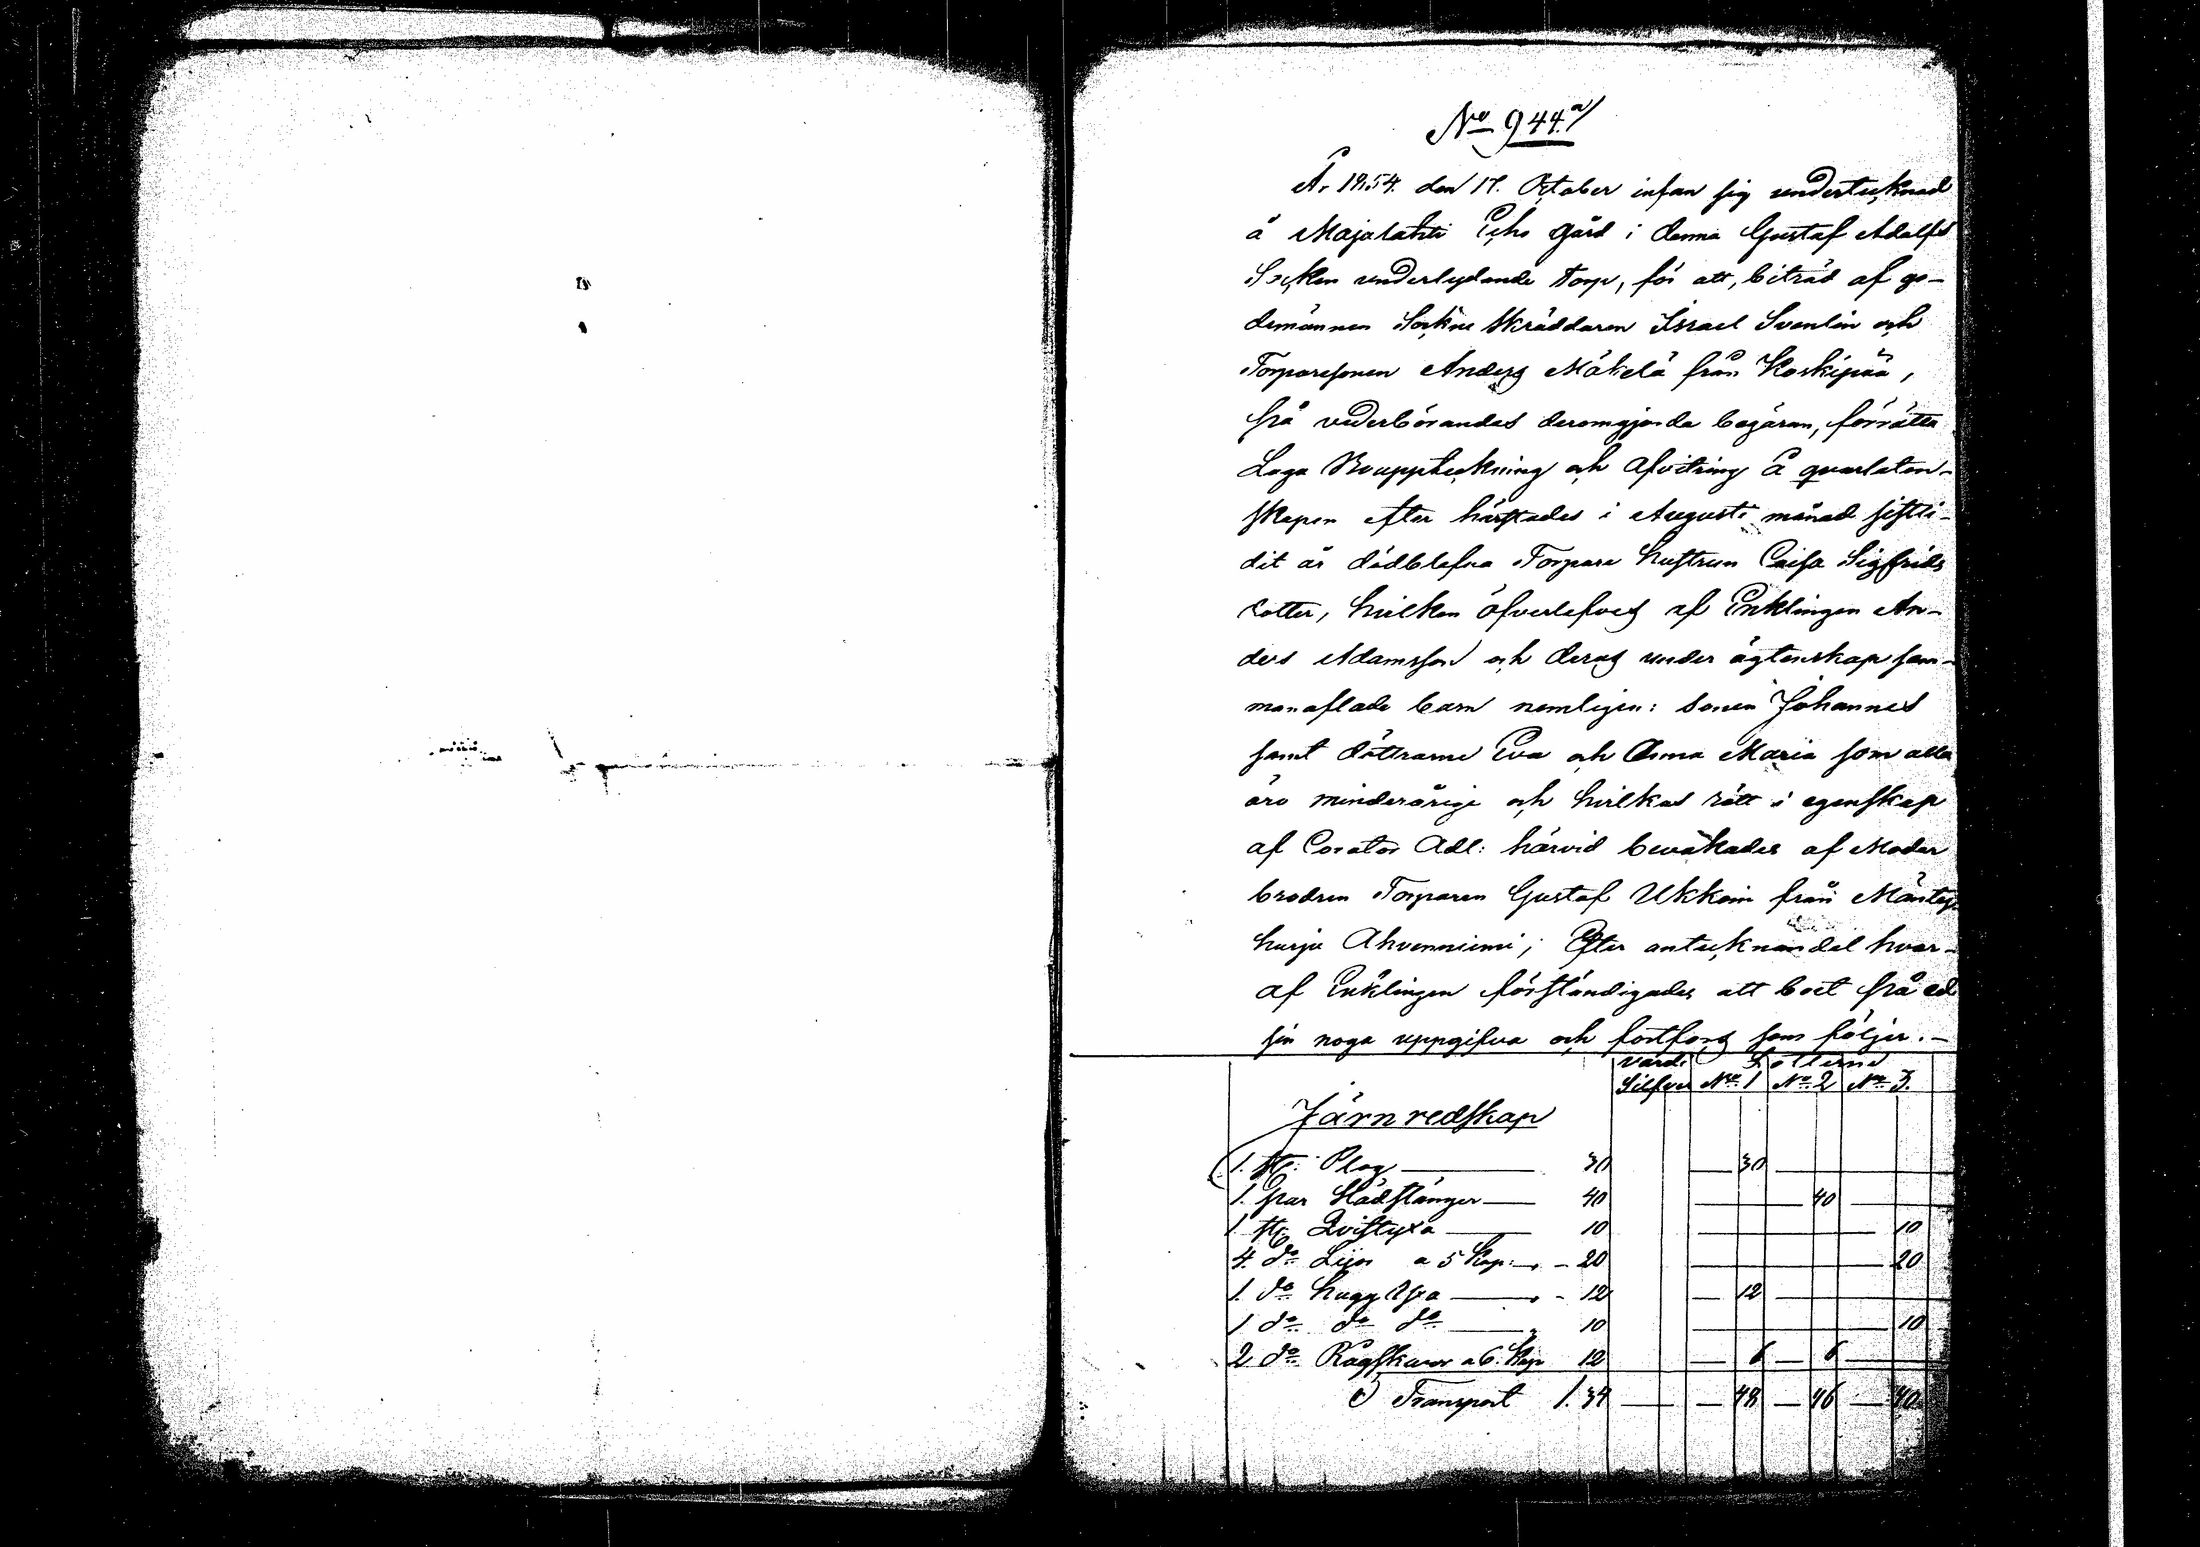 No 944 a/
År 1854. den 17. October infan sig undertecknad
å Majalahti Eeho gård i denna Gustaf Adolfs
Socken underlydande torp, för att, biträd af go-
demännen Sockne Skräddaren Israel Svenlin och
Torparesonen Anders Mäkelä från Koskipää,
på vederbörandes deromgjorda begäran, förrätta
Laga Bouppteckning och Afvitring å quarlåten-
skapen efter härstädes i Augusti månad sistli-
dit år dödblefna Torpare hustrun Caisa Sigfrids
dotter, hvilken öfverlefves af Enklingen An-
ders Adamsson och deras under ägtenskap sam-
manaflade barn nemligen: sonen Johannes
samt döttrarne Eva och Anna Maria som alla
äro minderårige och hvilkas rätt i egenskap
af Corator Adl: härvid bevakades af Moder
brodren Torparen Gustaf Ukkoin från Mänty
harju Ahvenniemi; Efter antecknandet hvar-
af Enklingen förständigades att boet på ed
sin noga uppgifva och fortfors som följer. —
värde Lotterne
Silfver No 1 No 2 No 3.
Järnredskap
1. st: Plog — 30 — 30 —
1. par Städstänger — 40 — 40 —
1 st: Qvistyxa — 10 — 10
4. do Lijor a 5 Kop: — 20 — 20
1. do huggYxa — 12 — 12 —
1 do do do — 10 — 10
2 do Rågskäror a 6. Kop 12 — 6 — 6 —
Transport 1. 34 — 48 — 46 — 40